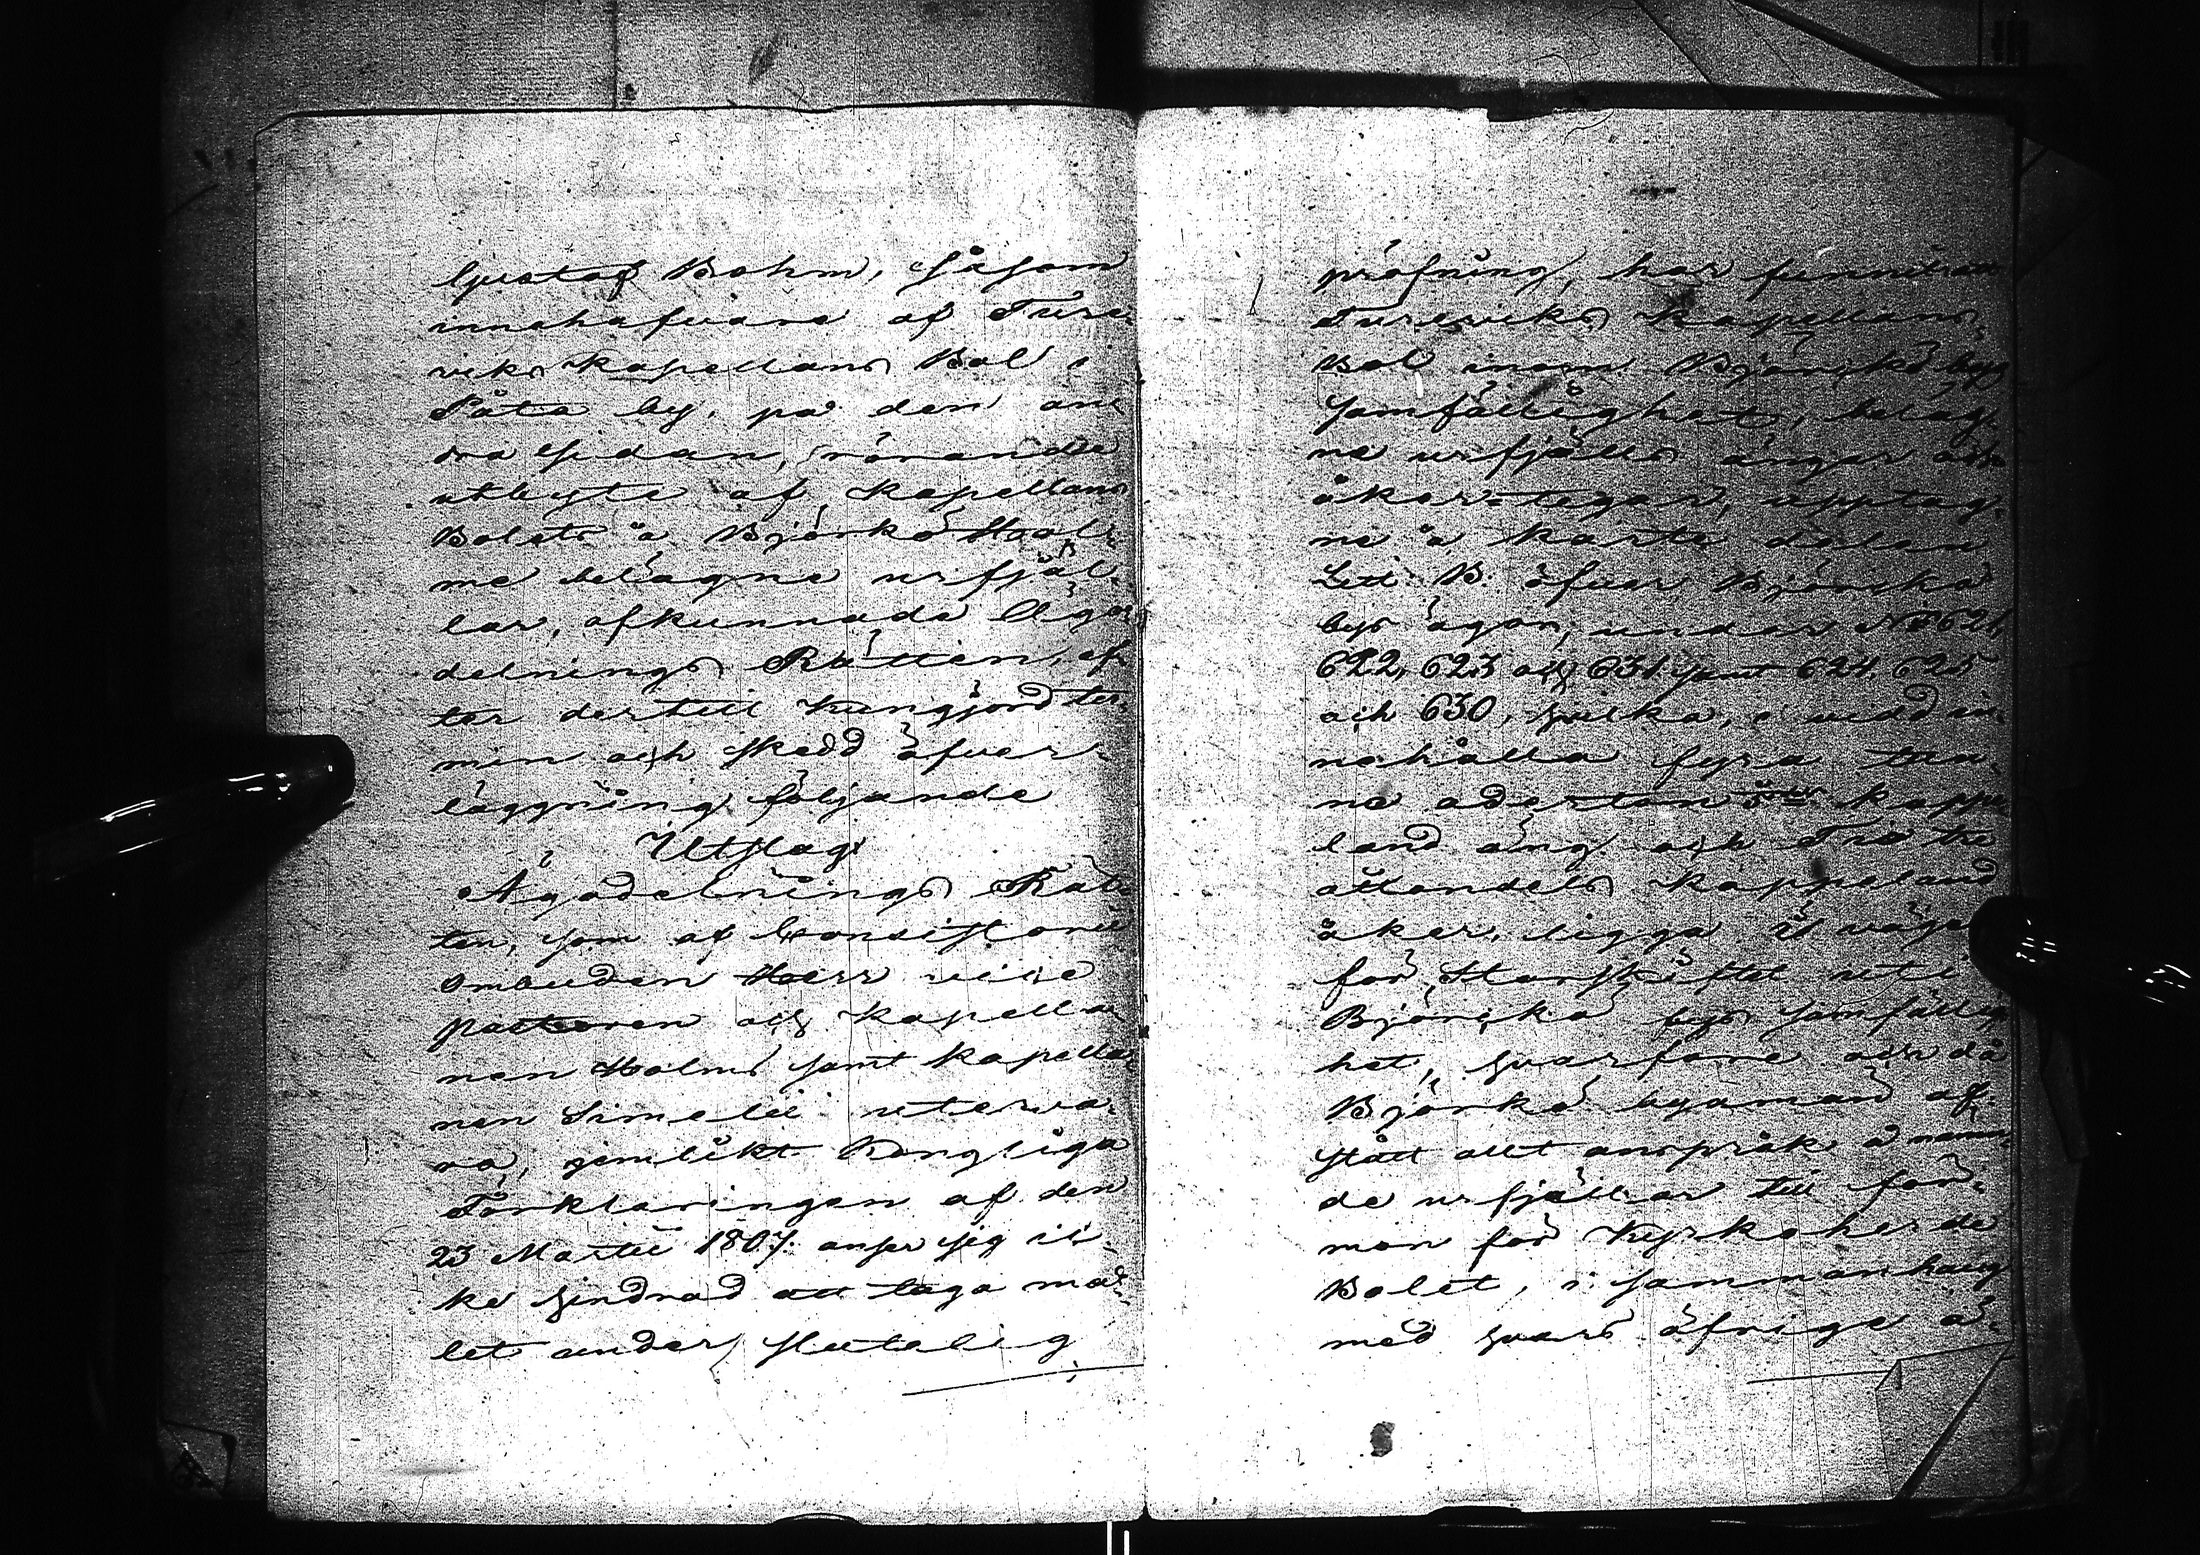 Gustaf Bohm, såsom
innehafvare af Ture-
viks Kapellans Bol i
Påta by, på den an-
dra sidan, rörande
utbyte af Kapellans
Bolets å Björkö Hol-
me belägne urfjäl-
lar, afkunnade Ägo-
delnings Rätten, ef-
ter dertill kungjord ter-
min och skedd öfver-
läggning följande
Utslag
Ägodelnings Rät-
ten, som af Consistorii
Ombuden Herr vice
Pastoren och Kapella-
nen Holms samt Kapella-
nen Simelii utevа-
ro, jemlikt Kongliga
Förklaringen af den
23 Martii 1807 anser sig ic-
ke hindrad att taga må-
let under slutelig
pröfning, har funnit att
Tureviks Kapellans
Bol inom Björckö bys
samfällighet, beläg-
ne urfjälls ängar och
åker-tegar, upptag-
ne å Karte delen
Litt. B. öfver Björckö
bys ägor, under No 621,
622, 623 och 631 samt 624, 625
och 630, hvilka, i vidd in-
nehålla fyra tun-
ne aderton kappe
land äng och Tio tre
åttondels kappeland
åker, ligga i väge
för Storskiftet uti
Björckö bys samfällig-
het, hvarföre och då
Björkö byamän af-
stått allt anspråk å näm-
de urfjällar till för-
mon för Kyrkoherde
Bolet, i sammanhang
med hvars öfrige ä-